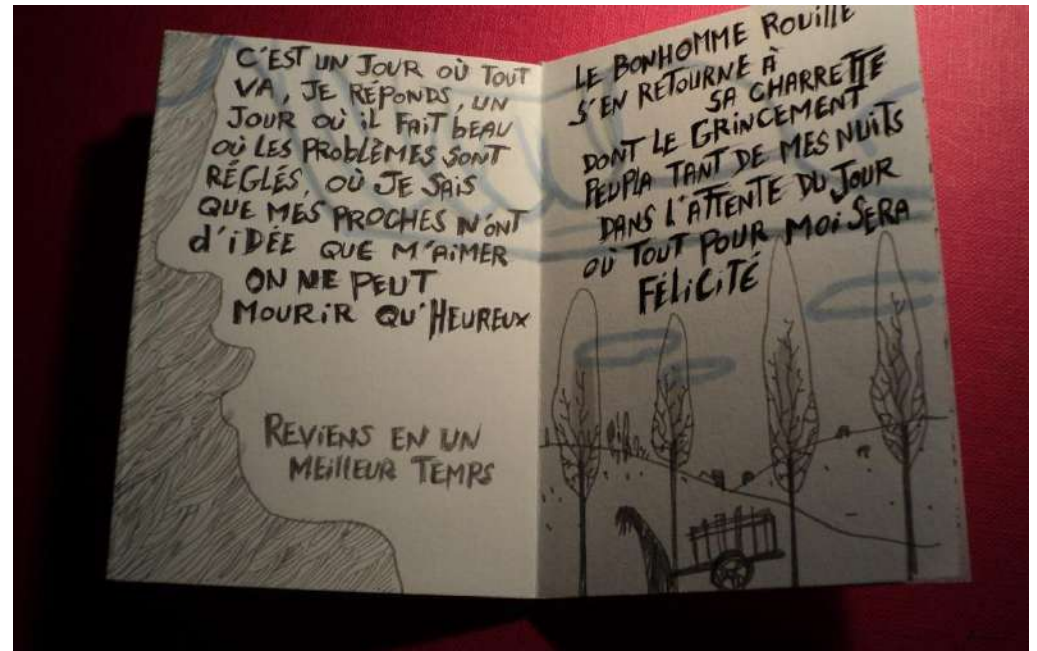 C'EST UN JOUR OÙ TOUT
VA, JE RÉPONDS, UN
JOUR OÙ iL FAIT bEAU
OÙ LES PROblÈMES SONT
RÉGLÉS, OÙ JE SAIS
QUE MES PROCHES N'ONT
d'iDÉE QUE M'AIMER
ON NE PEUT
MOURIR QU'HEUREUX
REVIENS EN UN
MEILLEUR TEMPS
LE BONHOMME ROUILLE
S'EN RETOURNE À
SA CHARRETTE
DONT LE GRINCEMENT
PEUPLA TANT DE MES NUITS
DANS L'ATTENTE DU JOUR
OÙ TOUT POUR MOI SERA
FÉLICITÉ